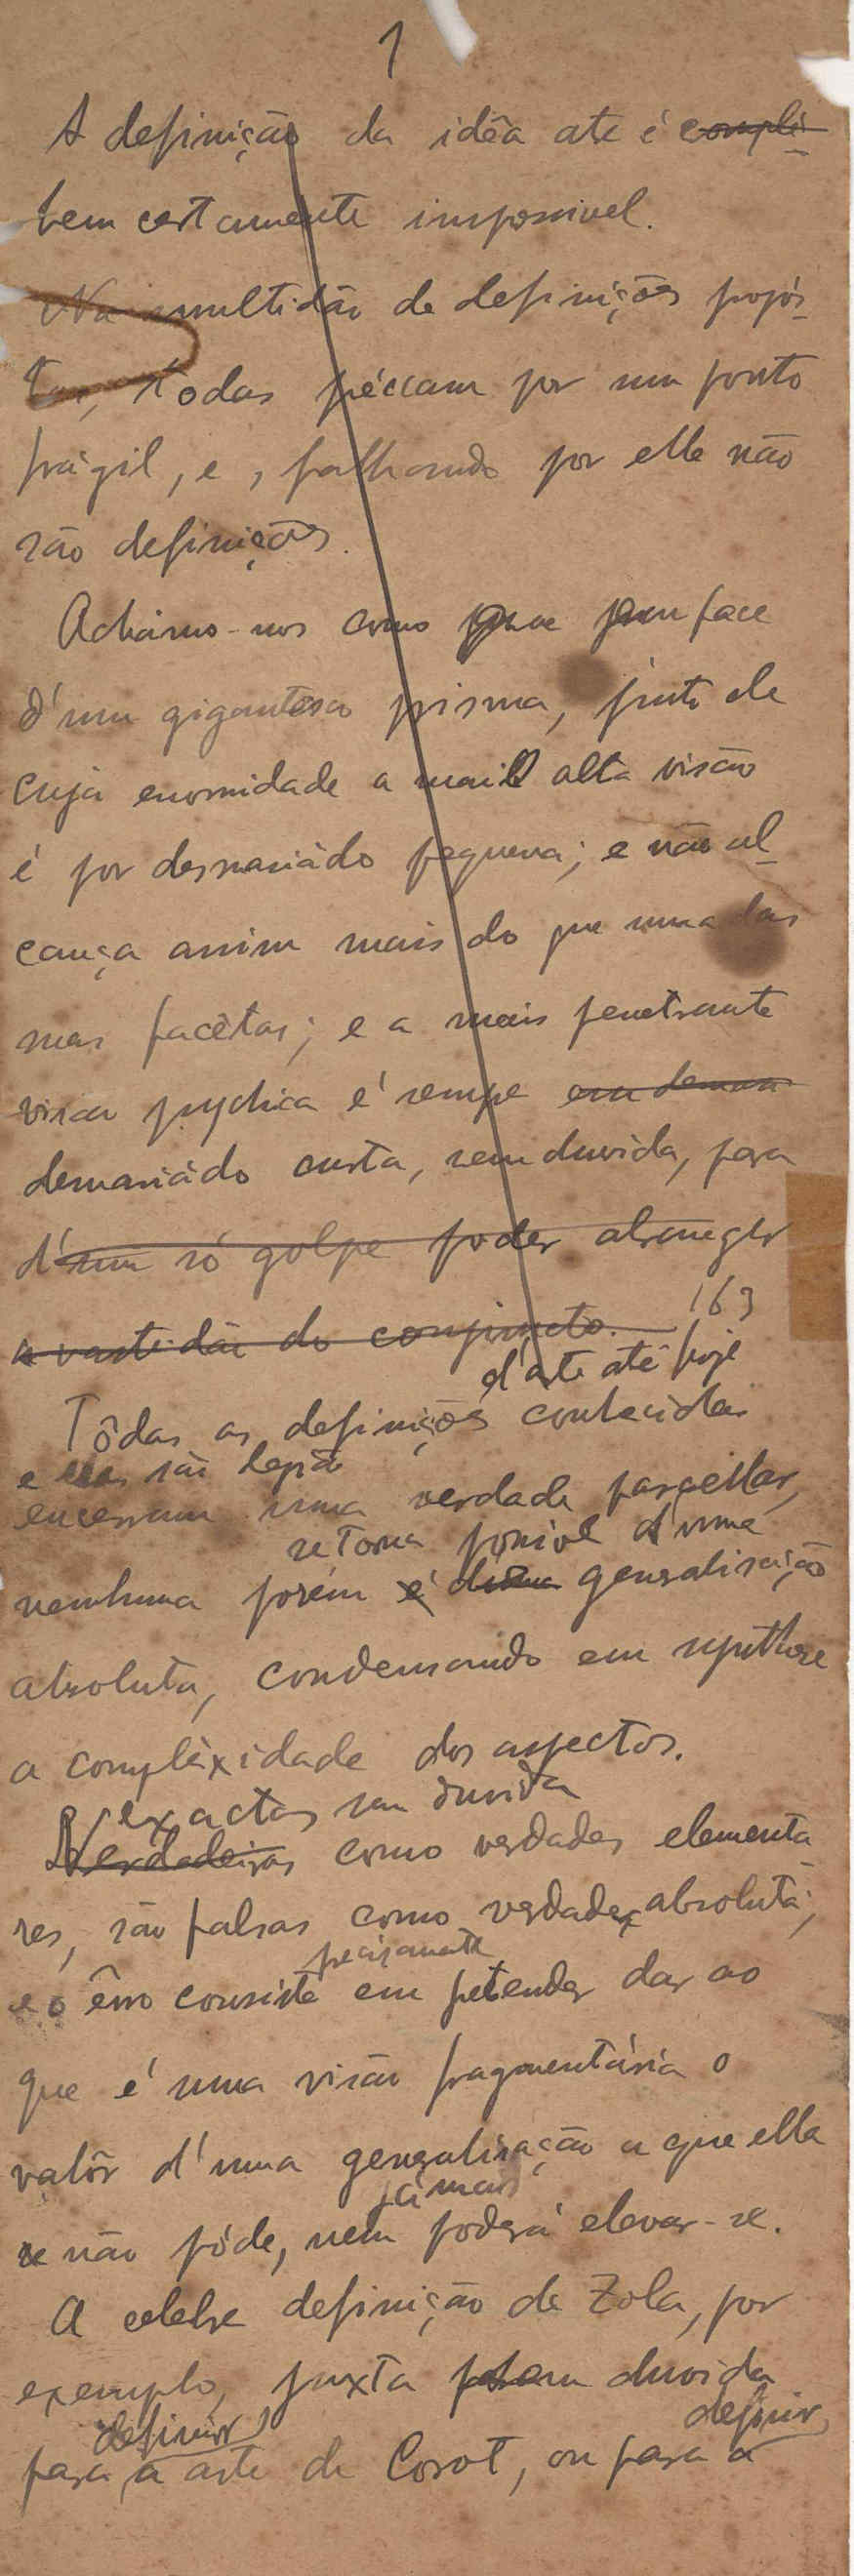 1
A definição da idêa ate é compli-
bem certamente impossivel.
Na multidão de definições propós-
tas, todas péccam por um ponto
frágil, e, falhando por elle não
são definições.
Achâmo-nos como que em face
d'um gigantesco prisma, junto de
cuja enormidade a mais alta visão
é por desmasiádo pequena; e não al-
cança assim mais do que uma das
suas facêtas; e a mais penetrante
visão psychica é sempre em demasia
demasiádo curta, sem duvida, para
d'um só golpe poder abranger
a vastidão do conjuncto. 163
d'arte até hoje
Tôdas as definições conhecidas
e ellas são legião
encerram uma verdade parcellar,
se torna possivel d'uma
nenhuma porém é d'uma generalisação
absoluta, condensando em synthese
a complèxidade dos aspectos.
exactas sem duvida
Verdadeiras como verdades elementa-
res, são falsas como verdades absolutas;
precisamente
e o êrro consiste em pretender dar ao
que é uma visão fragmentária o
valôr d'uma generalisação a que ella
jámais
se não póde, nem poderá elevar-se.
A celebre definição de Zola, por
exemplo, justa sem duvida
definir definir
para a arte de Corot, ou para a